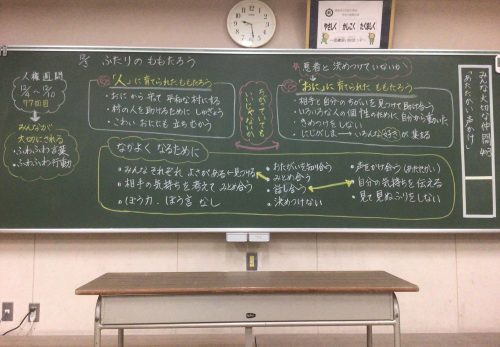 やさしく かしこく たくましく
12/5 ふたりの ももたろう
人権週間
12/4 〜 12/10
77回目
みんなが
大切にされる
・ふわふわ言葉
・ふわふわ行動
「人」に育てられたももたろう
・おにから守って平和な村にする
・村の人を助けるためにしかぎょう
・こわい おににも 立ちむかう
ちがっていても
いいじゃない
悪者と決めつけていないか
「おに」に育てられたももたろう
・相手と自分のちがいを見つけて助け合う
・いろいろな人の個性のために自分から動いた
・きめつけをしない
・にじがしま→いろんな好きが集まる
なかよく なるために
・みんな それぞれ よさがある←見つける
・相手の気持ちを考えて みとめ合う
・ぼう力・ぼう言 なし
・おたがいを知り合う
・みとめ合う
・話し合う
・決めつけない
・声をかけ合う(あたたかい)
・自分の気持ちを伝える
・見て見ぬふりをしない
みんな大切な仲間
あたたかい声かけ